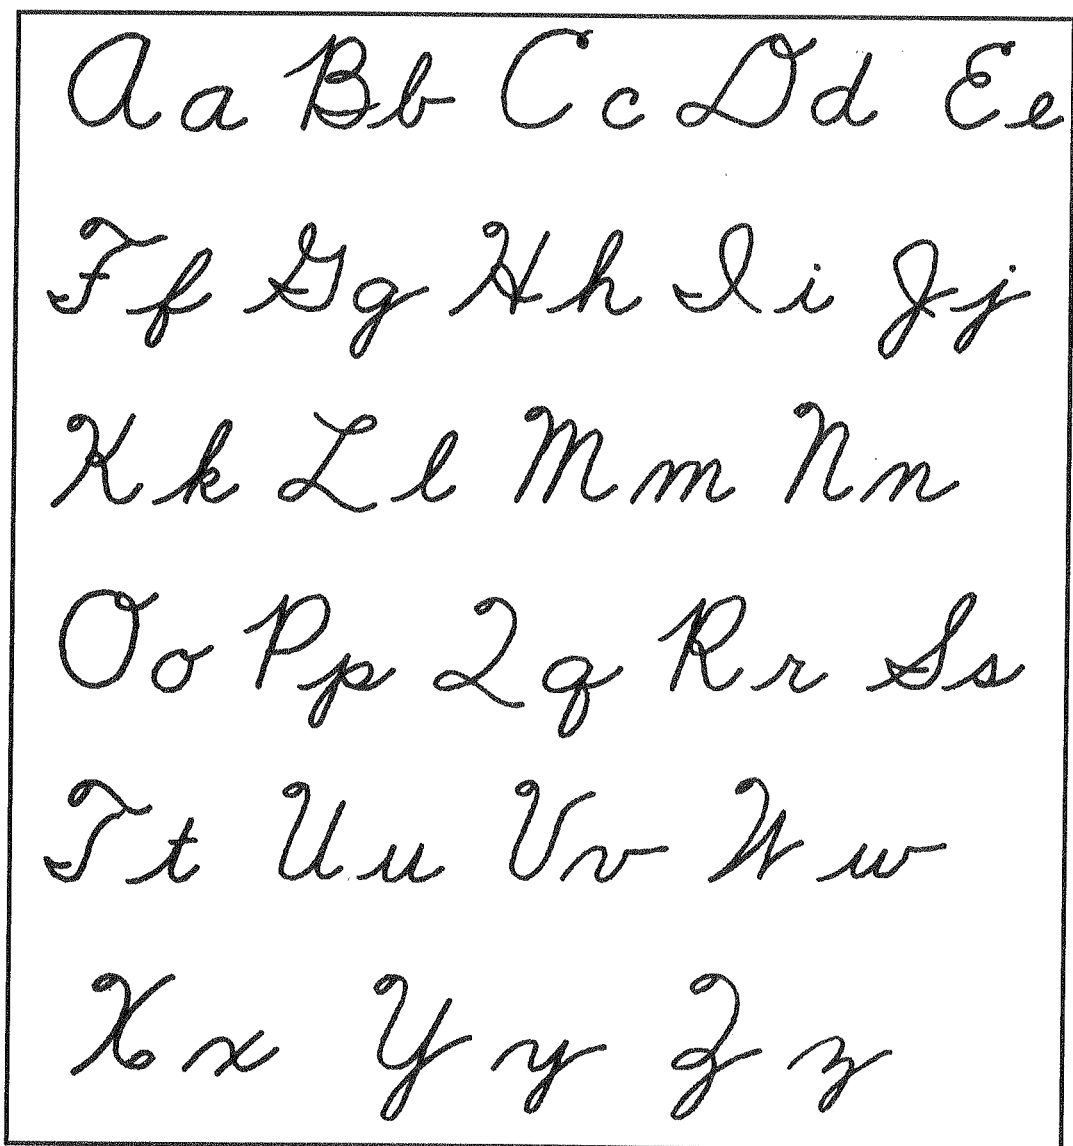 Aa Bb Cc Dd Ee
Ff Gg Hh Ii Jj
Kk Ll Mm Nn
Oo Pp Qq Rr Ss
Tt Uu Vv Ww
Xx Yy Zz